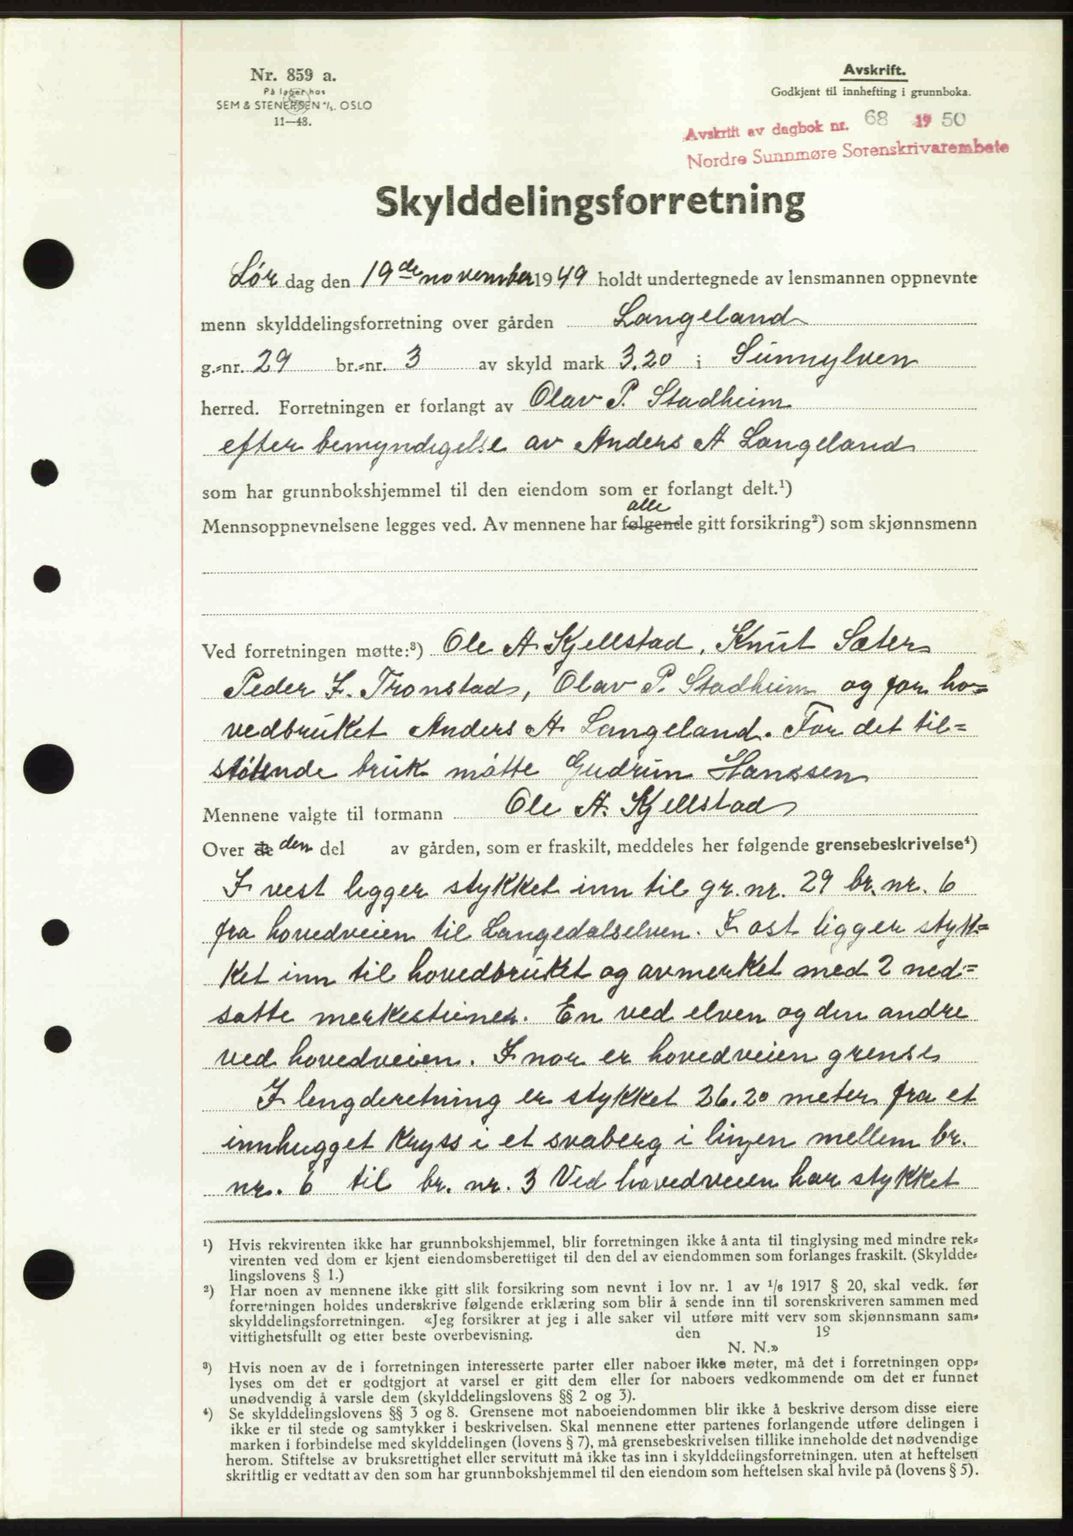 Nr. 859 a.
På lager hos
SEM & STENERSEN A/S. OSLO
11—48.
Avskrift.
Godkjent til innhefting i grunnboka.
Avskrift av dagbok nr. 68 1950
Nordre Sunnmøre Sorenskrivarembete
Skylddelingsforretning
Lør dag den 19de november 1949 holdt undertegnede av lensmannen oppnevnte
menn skylddelingsforretning over gården Langeland
g.-nr. 29 br.-nr. 3 av skyld mark 3.20 i Sunnylven
herred. Forretningen er forlangt av Olav P. Stadheim
efter bemyndigelse av Anders A Langeland
som har grunnbokshjemmel til den eiendom som er forlangt delt.¹)
alle
Mennsoppnevnelsene legges ved. Av mennene har følgende gitt forsikring²) som skjønnsmenn
Ved forretningen møtte:³) Ole A Kjellstad, Knut Sæter
Peder I. Tronstad, Olav P. Stadheim og for ho=
vedbruket Anders A Langeland. For det til=
støtende bruk møtte Gudrun Hanssen
Mennene valgte til formann Ole A. Kjellstad
Over de den del av gården, som er fraskilt, meddeles her følgende grensebeskrivelse⁴)
I vest ligger stykket inn til gr. nr. 29 br. nr. 6
fra hovedveien til Langedalselven. I øst ligger styk=
ket inn til hovedbruket og avmerket med 2 ned=
satte merkesteiner. En ved elven og den andre
ved hovedveien. I nor er hovedveien grense
I lengderetning er stykket 26.20 meter fra et
innhugget kryss i et svaberg i linjen mellem br.
nr. 6 til br. nr. 3 Ved hovedveien har stykket
¹) Hvis rekvirenten ikke har grunnbokshjemmel, blir forretningen ikke å anta til tinglysing med mindre rek-
virenten ved dom er kjent eiendomsberettiget til den del av eiendommen som forlanges fraskilt. (Skyldde-
lingslovens § 1.)
²) Har noen av mennene ikke gitt slik forsikring som nevnt i lov nr. 1 av 1/6 1917 § 20, skal vedk. før
forretningen holdes underskrive følgende erklæring som blir å sende inn til sorenskriveren sammen med
skylddelingsforretningen. «Jeg forsikrer at jeg i alle saker vil utføre mitt verv som skjønnsmann sam-
vittighetsfullt og etter beste overbevisning. den 19
N. N.»
³) Hvis noen av de i forretningen interesserte parter eller naboer ikke møter, må det i forretningen opp-
lyses om det er godtgjort at varsel er gitt dem eller for naboers vedkommende om det er funnet
unødvendig å varsle dem (skylddelingslovens §§ 2 og 3).
⁴) Se skylddelingslovens §§ 3 og 8. Grensene mot naboeiendommen blir ikke å beskrive dersom disse eiere
ikke er til stede og samtykker i beskrivelsen. Skal mennene etter partenes forlangende utføre delingen i
marken i forbindelse med skylddelingen (lovens § 7), må grensebeskrivelsen tillike inneholde det nødvendige
herom. Stiftelse av bruksrettighet eller servitutt må ikke tas inn i skylddelingsforretningen, uten at heftelsen
skriftlig er vedtatt av den som har grunnbokshjemmel til den eiendom som heftelsen skal hvile på (lovens § 5).